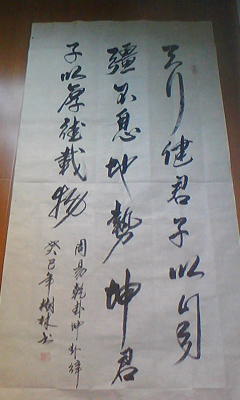 天行健君子以自
疆不息地勢坤君
子以厚德載物
周易乾卦坤卦辞
癸巳年樹林书